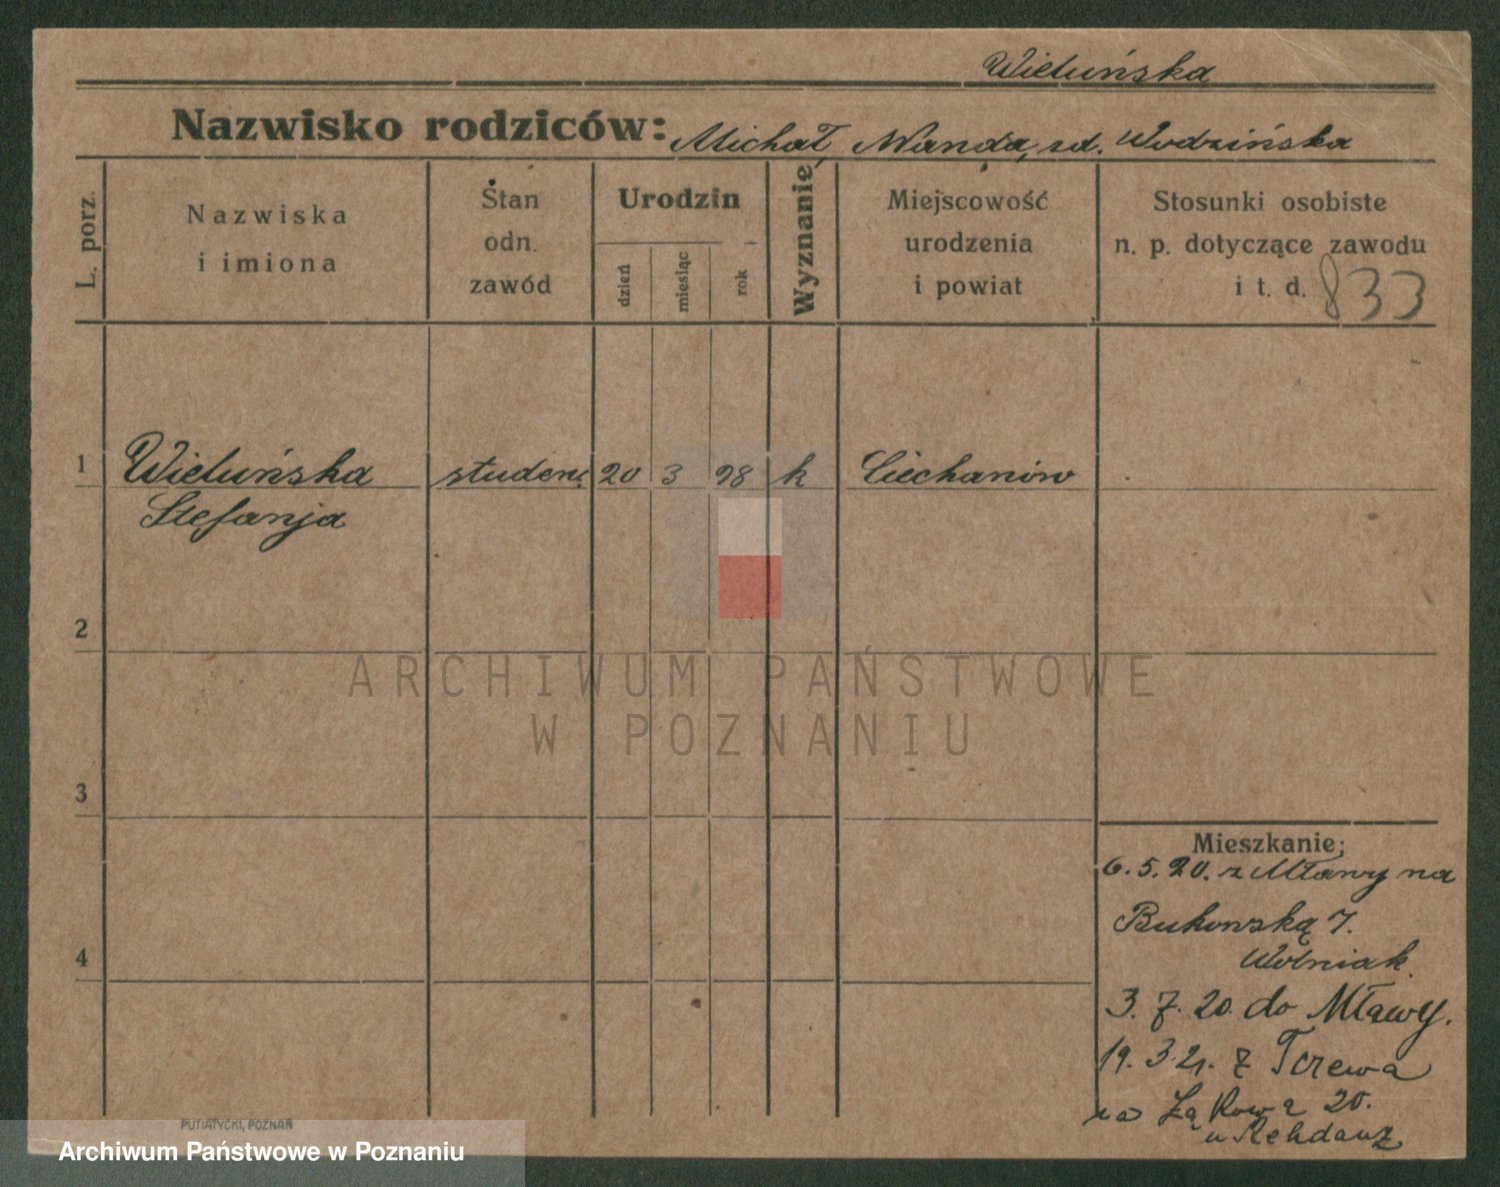 Wieluńska
Nazwisko rodziców: Michał, Wanda, zd. Wodzińska
L. porz.
Nazwiska
i imiona
Stan
odn.
zawód
Urodzin
dzień
miesiąc
rok
Wyznanie
Miejscowość
urodzenia
i powiat
Stosunki osobiste
n. p. dotyczące zawodu
i t. d. 833
1 Wieluńska student 20 3 98 k Ciechanów
Stefanja
2
ARCHIWUM PAŃSTWOWE
W POZNANIU
3
Mieszkanie:
6.5.20. z Mławy na
Bukowską 7.
Wolniak.
4
3.7.20. do Mławy.
19.3.21. z Tczewa
na Łąkową 20.
u
PUTIATYCKI, POZNAŃ
Archiwum Państwowe w Poznaniu